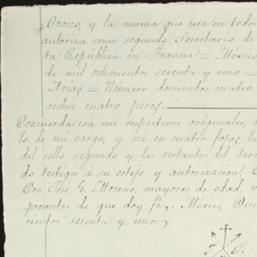 Orosco, y la misma que usa en todos
autoriza como segundo Secretario de
ta República en Francia = México
de mil ochocientos sesenta y uno =
Arias = Número doscientos cuatro
cuatro pesos.
Concuerda con sus respectivos originales,
lo de mi cargo, y vá en cuatro fojas la
del sello segundo y las restantes del
do testigos a su cotejo y autorizacion,
Don José G. Moreno, mayores de edad,
presentes de que doy fé. México,
cientos sesenta y uno